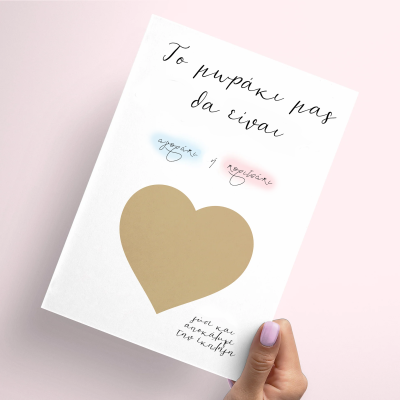 Το μωράκι μας
θα είναι
αγοράκι ή κοριτσάκι
ξύσε και
αποκάλυψε
την έκπληξη